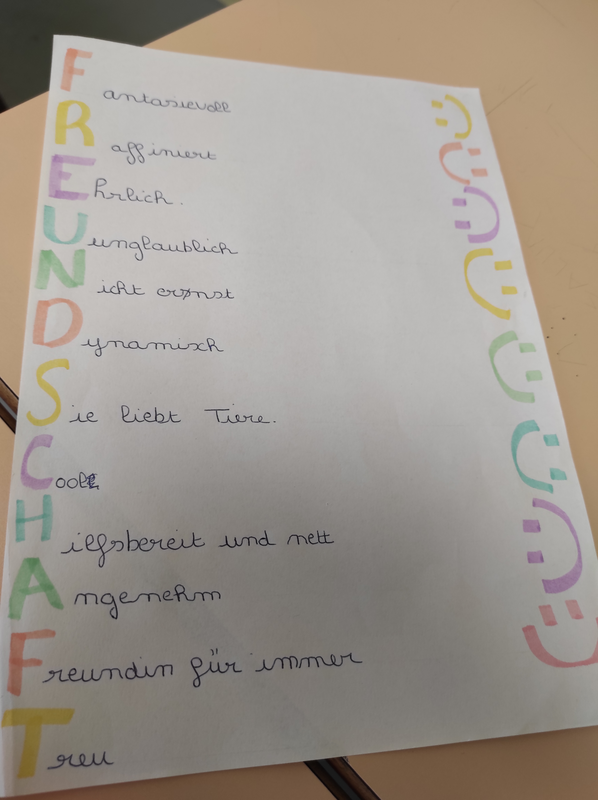 Fantasievoll
Raffiniert
Ehrlich.
Uunglaublich
Nicht ernst
Dynamisch
Sie liebt Tiere.
Cool
Hilfsbereit und nett
Angenehm
Freundin für immer
Treu